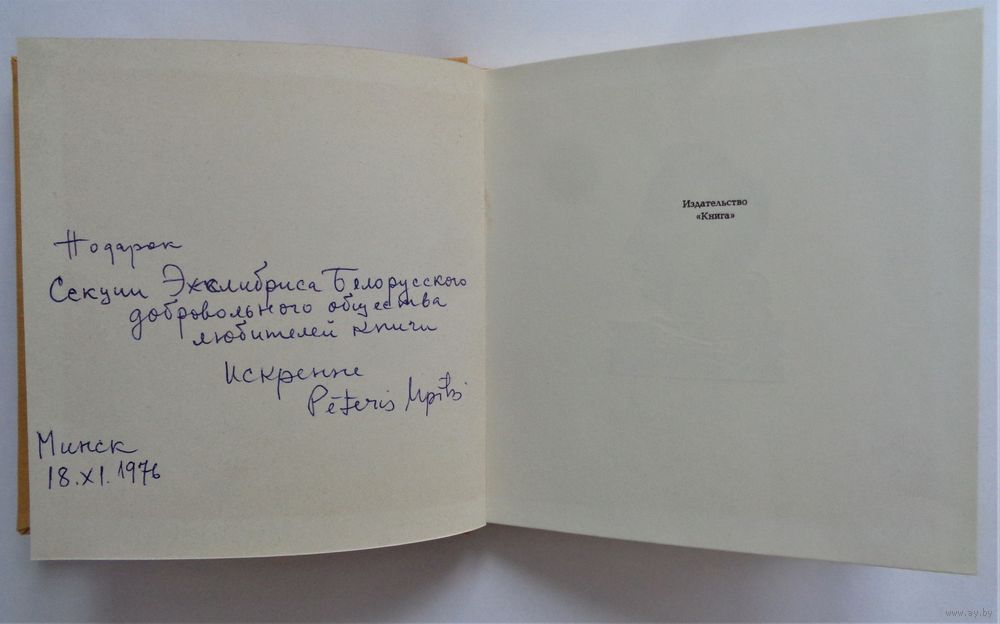 Подарок
Секции Экслибриса Белорусского
добровольного общества
любителей книги
Искренне
Pēteris Upītis
Минск
18.XI.1976
Издательство
«Книга»
www.ay.by